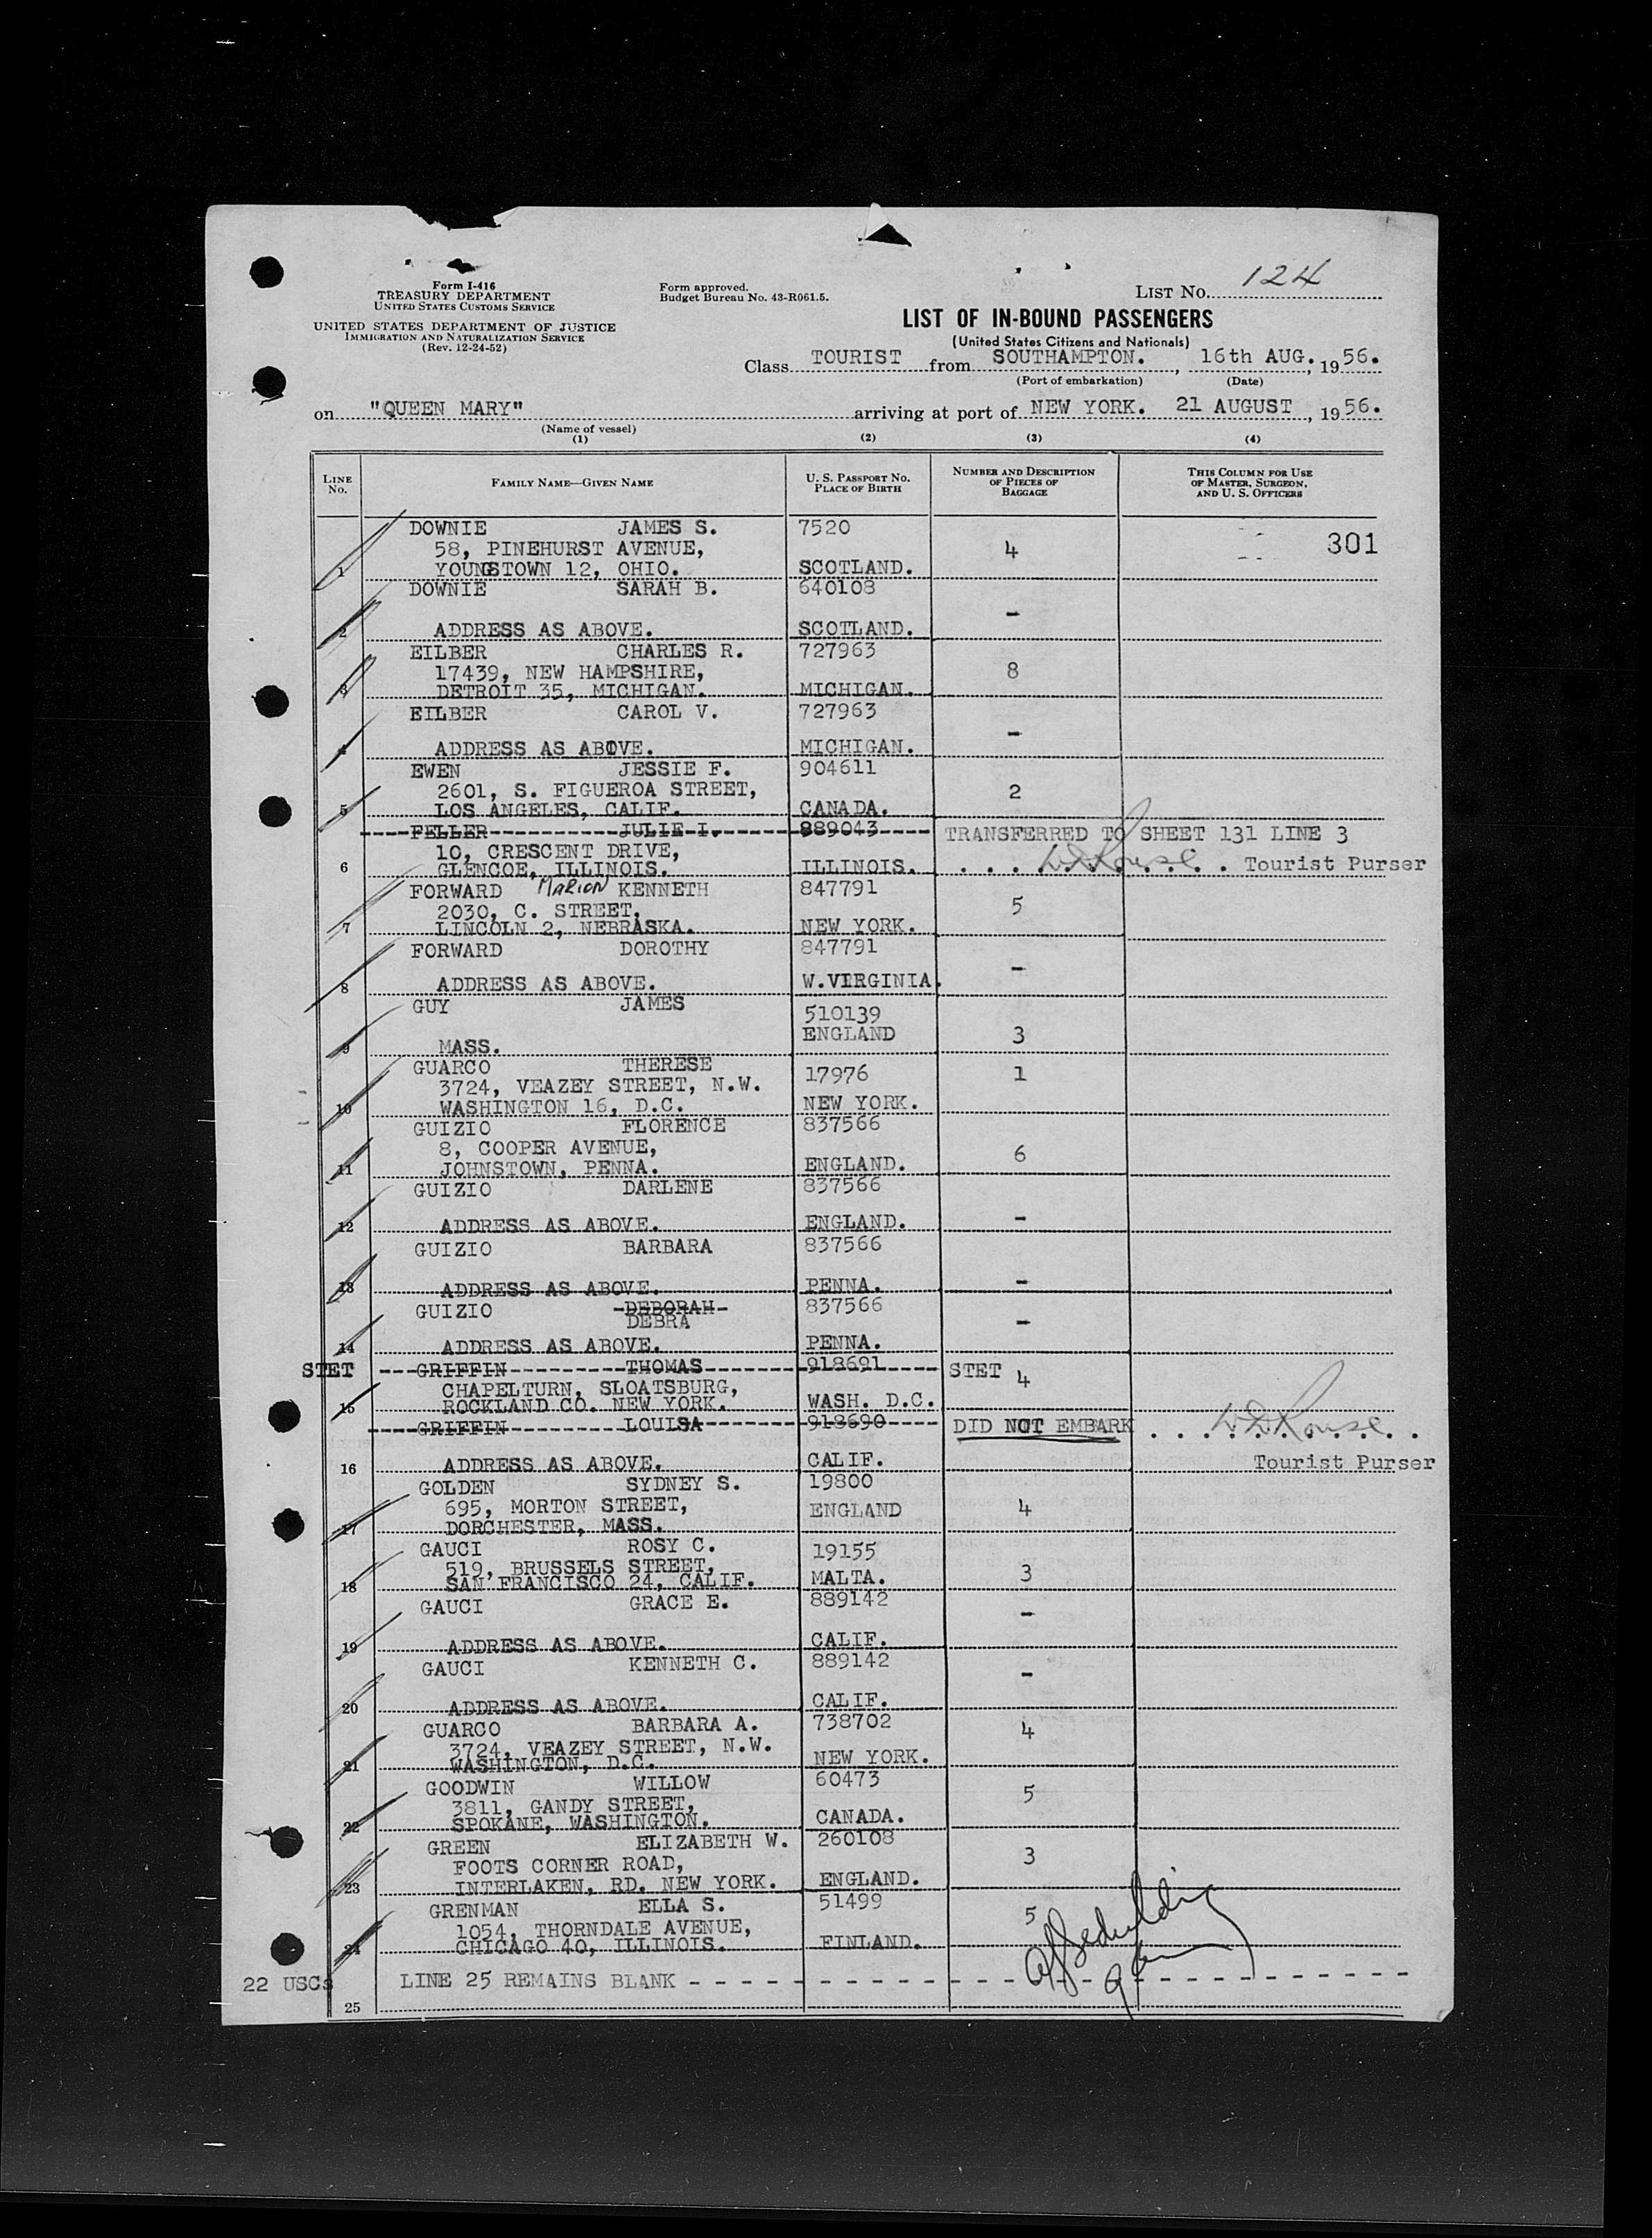 Form I-416
TREASURY DEPARTMENT
UNITED STATES CUSTOMS SERVICE
UNITED STATES DEPARTMENT OF JUSTICE
IMMIGRATION AND NATURALIZATION SERVICE
(Rev. 12-24-52)
Form approved.
Budget Bureau No. 43-R061.5.
LIST NO. 124
LIST OF IN-BOUND PASSENGERS
(United States Citizens and Nationals)
Class TOURIST from SOUTHAMPTON. , 16th AUG. , 19 56.
(Port of embarkation) (Date)
on "QUEEN MARY" arriving at port of NEW YORK. 21 AUGUST , 19 56.
(Name of vessel)
(1) (2) (3) (4)
LINE NO. FAMILY NAME—GIVEN NAME U. S. PASSPORT NO. PLACE OF BIRTH NUMBER AND DESCRIPTION OF PIECES OF BAGGAGE THIS COLUMN FOR USE OF MASTER, SURGEON, AND U. S. OFFICERS
DOWNIE JAMES S. 7520
58, PINEHURST AVENUE, 4 301
1 YOUNGSTOWN 12, OHIO. SCOTLAND.
DOWNIE SARAH B. 640108
-
2 ADDRESS AS ABOVE. SCOTLAND.
EILBER CHARLES R. 727963
17439, NEW HAMPSHIRE, 8
3 DETROIT 35, MICHIGAN. MICHIGAN.
EILBER CAROL V. 727963
-
4 ADDRESS AS ABOVE. MICHIGAN.
EWEN JESSIE F. 904611
2601, S. FIGUEROA STREET, 2
5 LOS ANGELES, CALIF. CANADA.
FELLER JULIE I. 889043 TRANSFERRED TO SHEET 131 LINE 3
10, CRESCENT DRIVE,
6 GLENCOE, ILLINOIS. ILLINOIS. Tourist Purser
FORWARD Marion KENNETH 847791
2030, C. STREET, 5
7 LINCOLN 2, NEBRASKA. NEW YORK.
FORWARD DOROTHY 847791
-
8 ADDRESS AS ABOVE. W.VIRGINIA.
GUY JAMES
510139
ENGLAND 3
9 MASS.
GUARCO THERESE
3724, VEAZEY STREET, N.W. 17976 1
10 WASHINGTON 16, D.C. NEW YORK.
GUIZIO FLORENCE 837566
8, COOPER AVENUE, 6
11 JOHNSTOWN, PENNA. ENGLAND.
GUIZIO DARLENE 837566
12 ADDRESS AS ABOVE. ENGLAND. -
GUIZIO BARBARA 837566
13 ADDRESS AS ABOVE. PENNA. -
GUIZIO DEBORAH 837566
DEBRA -
14 ADDRESS AS ABOVE. PENNA.
STET GRIFFIN THOMAS 918691 STET 4
CHAPELTURN, SLOATSBURG,
15 ROCKLAND CO. NEW YORK. WASH. D.C.
GRIFFIN LOUISA 918690 DID NOT EMBARK
16 ADDRESS AS ABOVE. CALIF. Tourist Purser
GOLDEN SYDNEY S. 19800
695, MORTON STREET, ENGLAND 4
17 DORCHESTER, MASS.
GAUCI ROSY C. 19155
519, BRUSSELS STREET, 3
18 SAN FRANCISCO 24, CALIF. MALTA.
GAUCI GRACE E. 889142
-
19 ADDRESS AS ABOVE. CALIF.
GAUCI KENNETH C. 889142
-
20 ADDRESS AS ABOVE. CALIF.
GUARCO BARBARA A. 738702 4
3724, VEAZEY STREET, N.W.
21 WASHINGTON, D.C. NEW YORK.
GOODWIN WILLOW 60473
3811, GANDY STREET, 5
22 SPOKANE, WASHINGTON. CANADA.
GREEN ELIZABETH W. 260108
FOOTS CORNER ROAD, 3
23 INTERLAKEN, RD. NEW YORK. ENGLAND.
GRENMAN ELLA S. 51499
1054, THORNDALE AVENUE, 5
24 CHICAGO 40, ILLINOIS. FINLAND.
22 USCs LINE 25 REMAINS BLANK
25